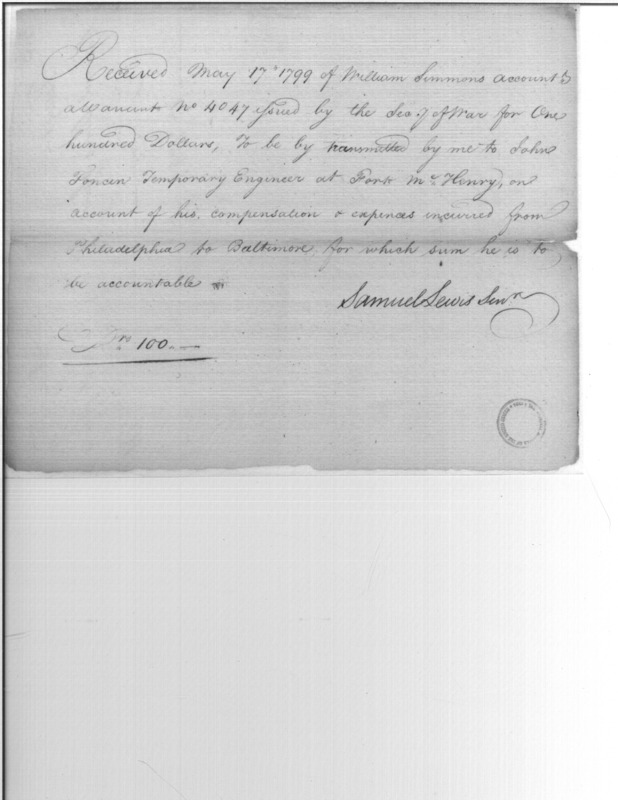 Received May 17th 1799 of William Simmons account.t
a Warrant No 4047 issued by the Secy of War for One
hundred Dollars, To be by transmitted by me to John
Foncin Temporary Engineer at Fort McHenry, on
account of his compensation & expences incurred from
Philadelphia to Baltimore for which sum he is to
be accountable
Samuel Lewis Senr
100